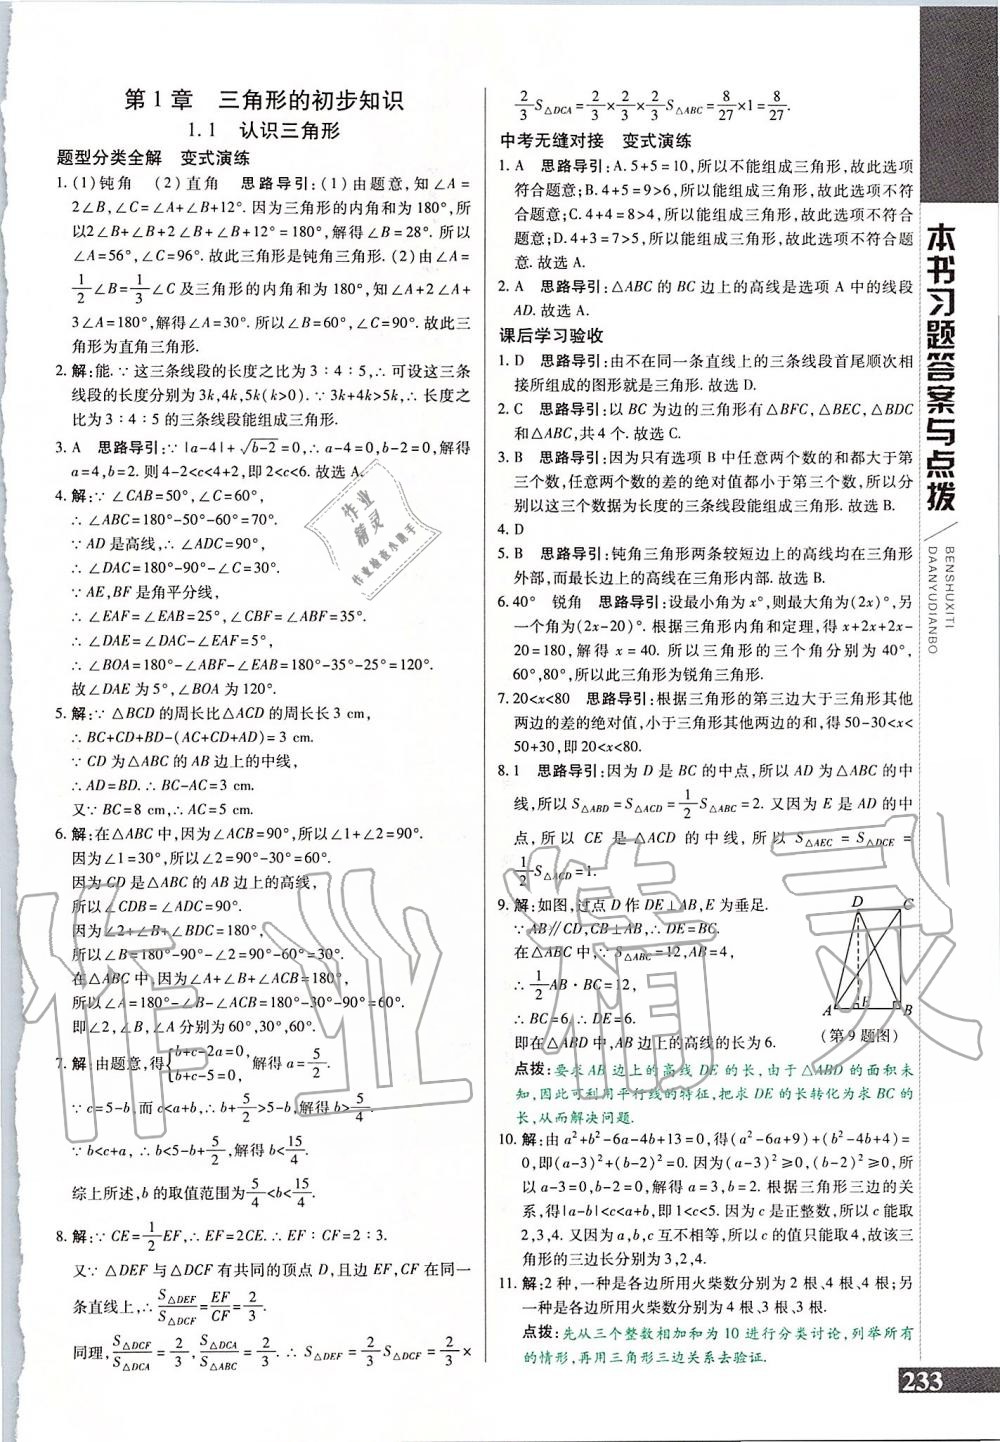 第1章　三角形的初步知识
1.1　认识三角形
题型分类全解　变式演练
1. (1)钝角　(2)直角　思路导引:(1)由题意,知∠A=
2∠B,∠C=∠A+∠B+12°. 因为三角形的内角和为180°,所
以2∠B+∠B+2∠B+∠B+12°=180°,解得∠B=28°. 所以
∠A=56°,∠C=96°. 故此三角形是钝角三角形. (2)由∠A=
1/2∠B=1/3∠C及三角形的内角和为180°,知∠A+2∠A+
3∠A=180°,解得∠A=30°. 所以∠B=60°,∠C=90°. 故此三
角形为直角三角形.
2. 解:能. ∵这三条线段的长度之比为3∶4∶5,∴可设这三条
线段的长度分别为3k,4k,5k(k>0). ∵3k+4k>5k,∴长度之
比为3∶4∶5的三条线段能组成三角形.
3. A　思路导引:∵|a-4|+√(b-2)=0,∴a-4=0,b-2=0,解得
a=4,b=2. 则4-2<c<4+2,即2<c<6. 故选A.
4. 解:∵∠CAB=50°,∠C=60°,
∴∠ABC=180°-50°-60°=70°.
∵AD是高线,∴∠ADC=90°,
∴∠DAC=180°-90°-∠C=30°.
∵AE,BF是角平分线,
∴∠EAF=∠EAB=25°,∠CBF=∠ABF=35°,
∴∠DAE=∠DAC-∠EAF=5°,
∴∠BOA=180°-∠ABF-∠EAB=180°-35°-25°=120°.
故∠DAE为5°,∠BOA为120°.
5. 解:∵△BCD的周长比△ACD的周长长3 cm,
∴BC+CD+BD-(AC+CD+AD)=3 cm.
∵CD为△ABC的AB边上的中线,
∴AD=BD. ∴BC-AC=3 cm.
又∵BC=8 cm,∴AC=5 cm.
6. 解:在△ABC中,因为∠ACB=90°,所以∠1+∠2=90°.
因为∠1=30°,所以∠2=90°-30°=60°.
因为CD是△ABC的AB边上的高线,
所以∠CDB=∠ADC=90°.
因为∠2+∠B+∠BDC=180°,
所以∠B=180°-∠BDC-∠2=90°-60°=30°.
在△ABC中,因为∠A+∠B+∠ACB=180°,
所以∠A=180°-∠B-∠ACB=180°-30°-90°=60°.
即∠2,∠B,∠A分别为60°,30°,60°.
7. 解:由题意,得{b+c-2a=0, b+c-5=0, 解得a=5/2.
∵c=5-b,而c<a+b,∴b+5/2>5-b,解得b>5/4.
∵b<c+a,∴b<5-b+5/2,解得b<15/4.
综上所述,b的取值范围为5/4<b<15/4.
8. 解:∵CE=1/2EF,∴EF=2CE. ∴EF∶CF=2∶3.
又∵△DEF与△DCF有共同的顶点D,且边EF,CF在同一
条直线上,∴S△DEF/S△DCF=EF/CF=2/3.
同理,S△DCF/S△DCA=2/3,S△DCA/S△ABC=2/3. ∴S△DEF=2/3S△DCF=2/3×
2/3S△DCA=2/3×2/3×2/3S△ABC=8/27×1=8/27.
中考无缝对接　变式演练
1. A　思路导引:A. 5+5=10,所以不能组成三角形,故此选项
符合题意;B. 4+5=9>6,所以能组成三角形,故此选项不符
合题意;C. 4+4=8>4,所以能组成三角形,故此选项不符合
题意;D. 4+3=7>5,所以能组成三角形,故此选项不符合题
意. 故选A.
2. A　思路导引:△ABC的BC边上的高线是选项A中的线段
AD. 故选A.
课后学习验收
1. D　思路导引:由不在同一条直线上的三条线段首尾顺次相
接所组成的图形就是三角形. 故选D.
2. C　思路导引:以BC为边的三角形有△BFC,△BEC,△BDC
和△ABC,共4个. 故选C.
3. B　思路导引:因为只有选项B中任意两个数的和都大于第
三个数,任意两个数的差的绝对值都小于第三个数,所以分
别以这三个数据为长度的三条线段能组成三角形. 故选B.
4. D
5. B　思路导引:钝角三角形两条较短边上的高线均在三角形
外部,而最长边上的高线在三角形内部. 故选B.
6. 40°　锐角　思路导引:设最小角为x°,则最大角为(2x)°,另
一个角为(2x-20)°. 根据三角形内角和定理,得x+2x+2x-
20=180,解得x=40. 所以三角形的三个角分别为40°,
60°,80°,所以此三角形为锐角三角形.
7. 20<x<80　思路导引:根据三角形的第三边大于三角形其他
两边的差的绝对值,小于三角形其他两边的和,得50-30<x<
50+30,即20<x<80.
8. 1　思路导引:因为D是BC的中点,所以AD为△ABC的中
线,所以S△ABD=S△ACD=1/2S△ABC=2. 又因为E是AD的中
点,所以CE是△ACD的中线,所以S△AEC=S△DCE=
1/2S△ACD=1.
9. 解:如图,过点D作DE⊥AB,E为垂足.
∵AB∥CD,CB⊥AB,∴DE=BC.
在△ABC中,∵S△ABC=12,AB=4,
∴1/2AB·BC=12,
∴BC=6,∴DE=6.
即在△ABD中,AB边上的高线的长为6.
D C
A E B
(第9题图)
点拨:要求AB边上的高线DE的长,由于△ABD的面积未
知,因此可利用平行线的特征,把求DE的长转化为求BC的
长,从而解决问题.
10. 解:由a²+b²-6a-4b+13=0,得(a²-6a+9)+(b²-4b+4)=
0,即(a-3)²+(b-2)²=0. 因为(a-3)²≥0,(b-2)²≥0,所
以a-3=0,b-2=0,解得a=3,b=2. 根据三角形三边的关
系,得|a-b|<c<a+b,即1<c<5. 因为c是正整数,所以c能取
2,3,4. 又因为a,b,c互不相等,所以c的值只能取4,故该三
角形的三边长分别为3,2,4.
11. 解:2种,一种是各边所用火柴数分别为2根、4根、4根;另
一种是各边所用火柴数分别为4根、3根、3根.
点拨:先从三个整数相加和为10进行分类讨论,列举所有
的情形,再用三角形三边关系去验证.
本书习题答案与点拨
BENSHUXITI
DAANYUDIANBO
233
作业
精灵
作业检查小助手
作业精灵